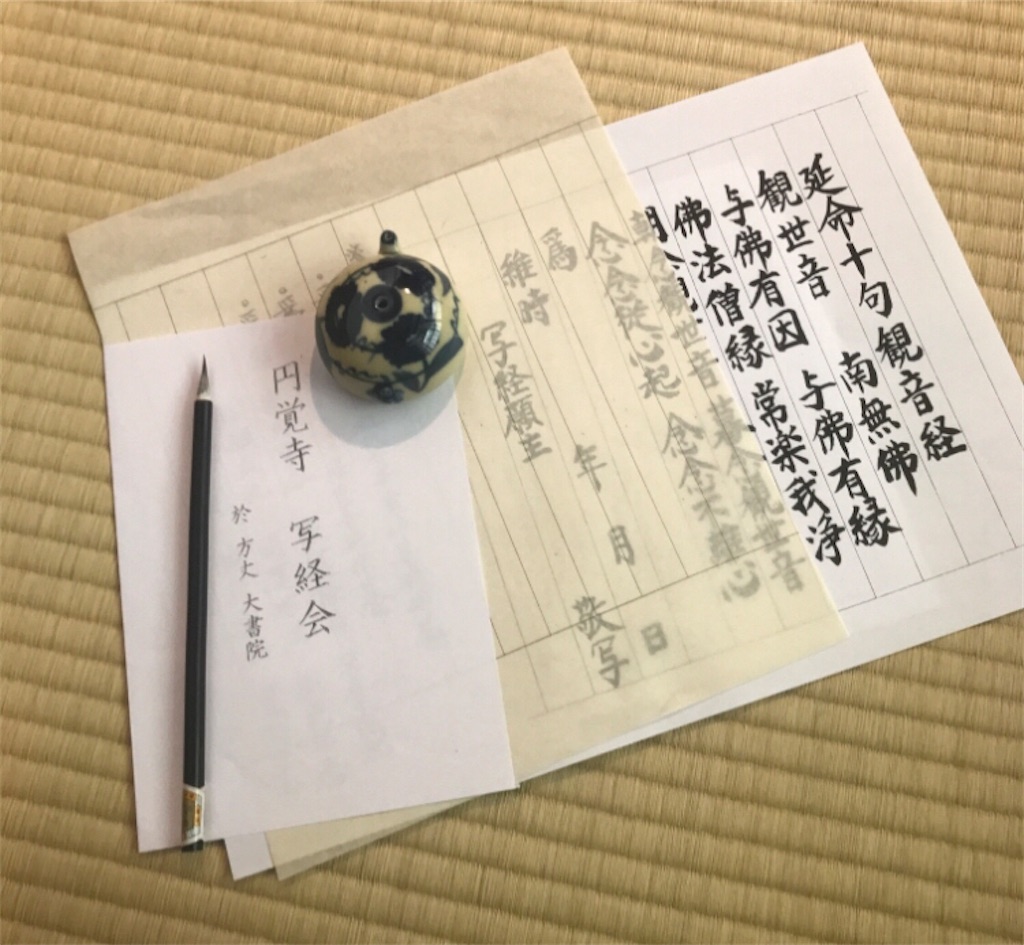 延命十句観音経
観世音 南無佛
与佛有因 与佛有縁
佛法僧縁 常楽我浄
朝念観世音 暮念観世音
念念従心起 念念不離心
爲
維時 年 月 日
写経願主 敬写
円覚寺 写経会
於 方丈 大書院